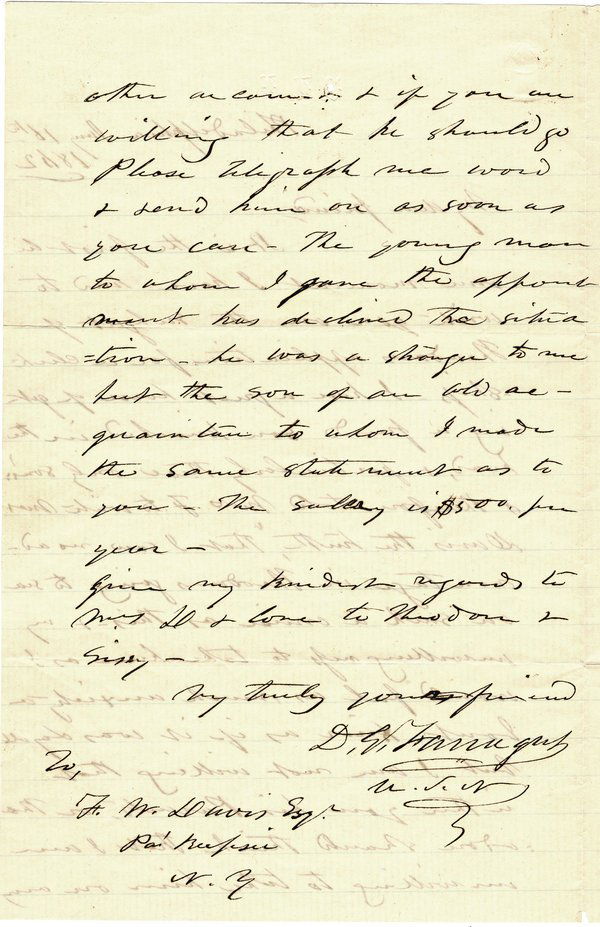 other account & if you are
willing that he should go
Please telegraph me word
& send him on as soon as
you can - The young man
to whom I gave the appoint
ment has declined the situa
=tion - he was a stranger to me
but the son of an old ac-
quaintance to whom I made
the same statement as to
you - The salary is $500. per
year -
Give my kindest regards to
Mrs D & love to Theodore &
Sissy -
Very truly your friend
D. G. Farragut
U.S.N
To,
F. W. Davis Esqr.
N. Y